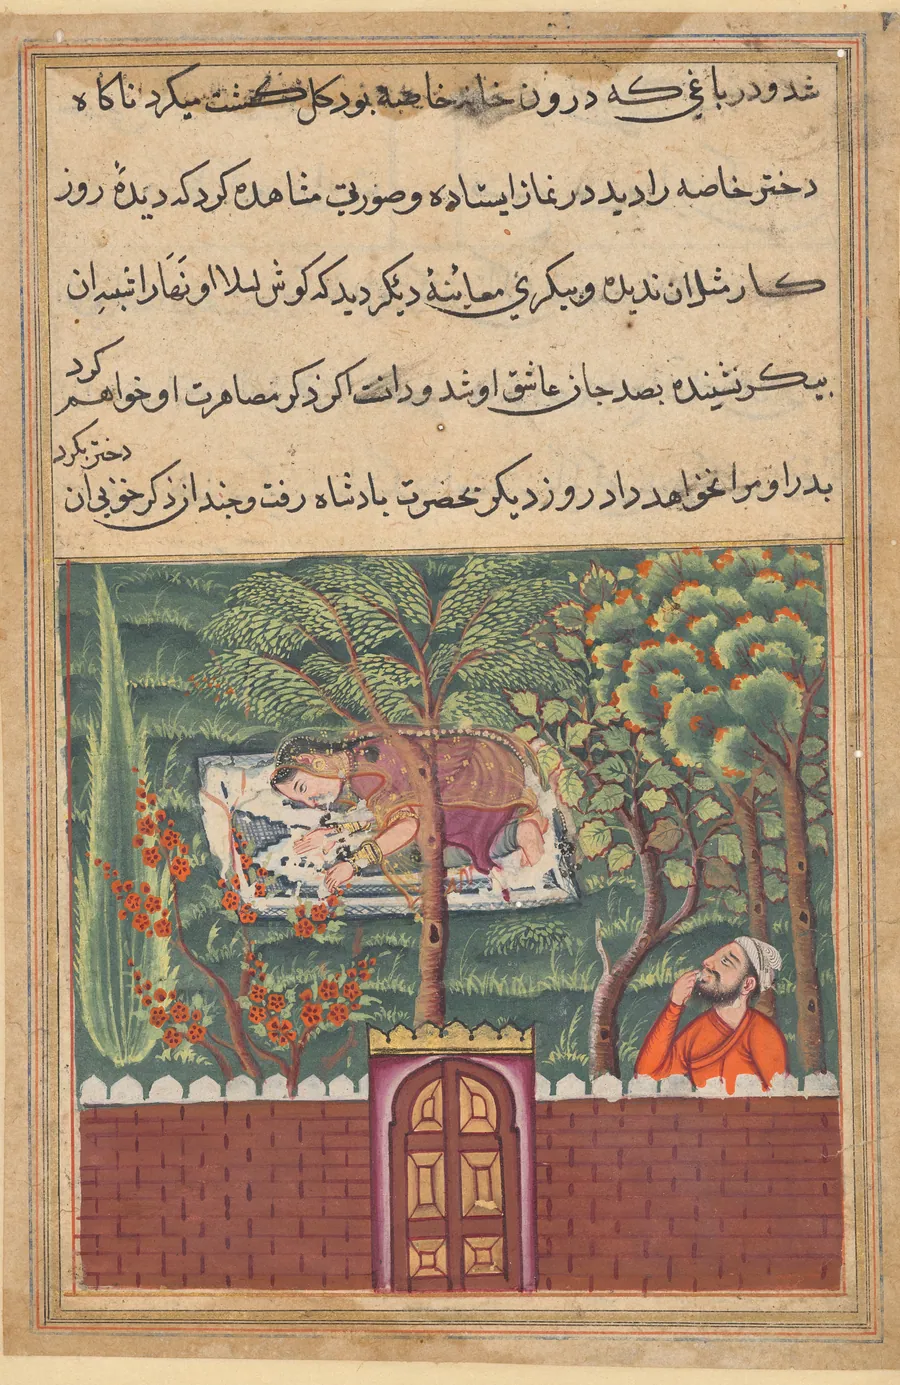 شد و در باغی که درون خانه خاصه بود کل کشت میکرد ناکاه
دختر خاصه را دید در نماز ایستاده و صورتی مشاهده کرد که دیدهٔ روز
کار مثل ان ندیده و پیکری معاینهٔ دیکر دید که کوش لیلا و نهار
پیکر نشینده بصد جان عاشق او شد و دانست اکر ذکر مصاهرت او خواهم کرد
پدر او مرا نخواهد داد روز دیکر بحضرت بادشاه رفت و چنداز ذکر خوبی ان
دختر بکرد